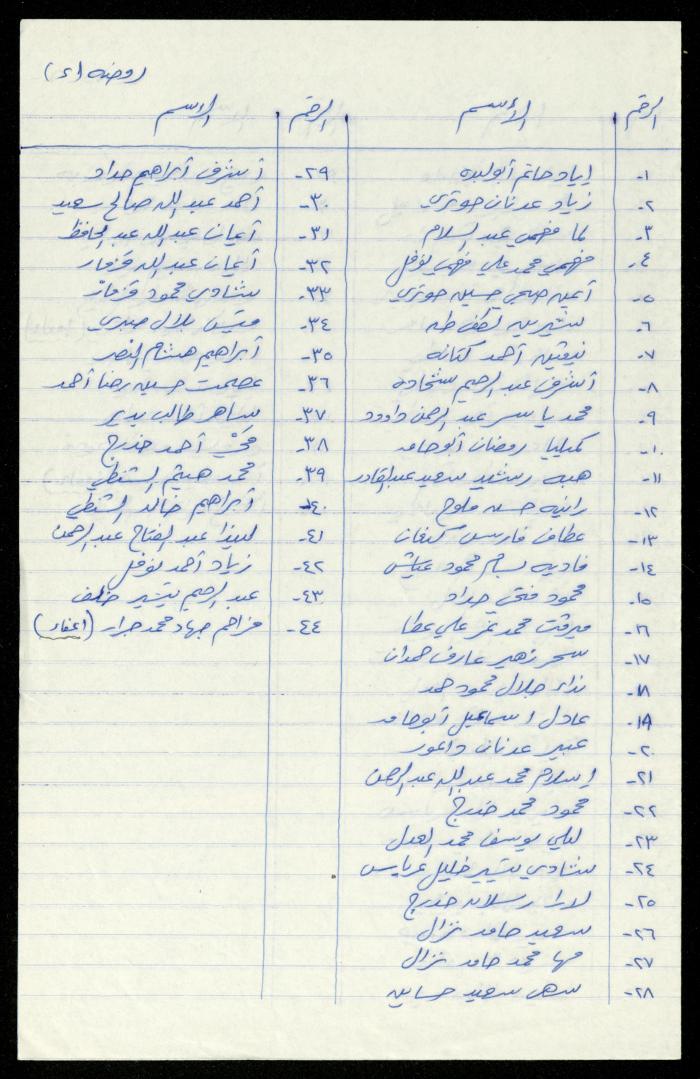 روضه (٢)
الرقم الأسم
١- إياد حاتم أبولبده
٢- زياد عدنان حوتري
٣- لما فهمي عبد السلام
٤- فهمي محمد علي فهمي نوفل
٥- أمين صبحي حسين حوتري
٦- شيرين لطفي طه
٧- نيفين أحمد كنانه
٨- أشرف عبد الرحيم شحاده
٩- محمد ياسر عبد الرحمن داوود
١٠- كميليا رمضان أبوحامد
١١- هبه رشيد سعيد عبدالقادر
١٢- رانيه حسن ملوح
١٣- عطاف فارس كنعان
١٤- فاديه بسام محمود عياش
١٥- محمود فتحي حداد
١٦- ميرفت محمد عمر علي عطا
١٧- سحر زهير عارف حمدان
١٨- نداء جلال محمود حمد
١٩- عادل اسماعيل أبوحامد
٢٠- عبير عدنان داعور
٢١- إسلام محمد عبد الله عبد الرحمن
٢٢- محمود محمد خدرج
٢٣- ليلى يوسف محمد العدل
٢٤- شادي تيسير خليل عرباس
٢٥- لارا رسلان خدرج
٢٦- سعيد حامد نزال
٢٧- مها محمد حامد نزال
٢٨- سهى سعيد حسانين
الرقم الاسم
٢٩- أشرف أبراهيم حداد
٣٠- أحمد عبد الله صالح سعيد
٣١- أيمان عبد الله عبد الحافظ
٣٢- أيمان عبد الله قزمار
٣٣- شادي محمود قزمار
٣٤- ميس بلال صبري
٣٥- أبراهيم هشام النصر
٣٦- عصمت حسين رضا أحمد
٣٧- ساهر طالب بدير
٣٨- مي أحمد خدرج
٣٩- محمد هيثم الشنطي
٤٠- أبراهيم خالد الشنطي
٤١- ليزا عبد الفتاح عبد الرحمن
٤٢- زياد أحمد نوفل
٤٣- عبد الرحيم تيسير خلف
٤٤- مزاحم جهاد محمد جرار (اعفاء)